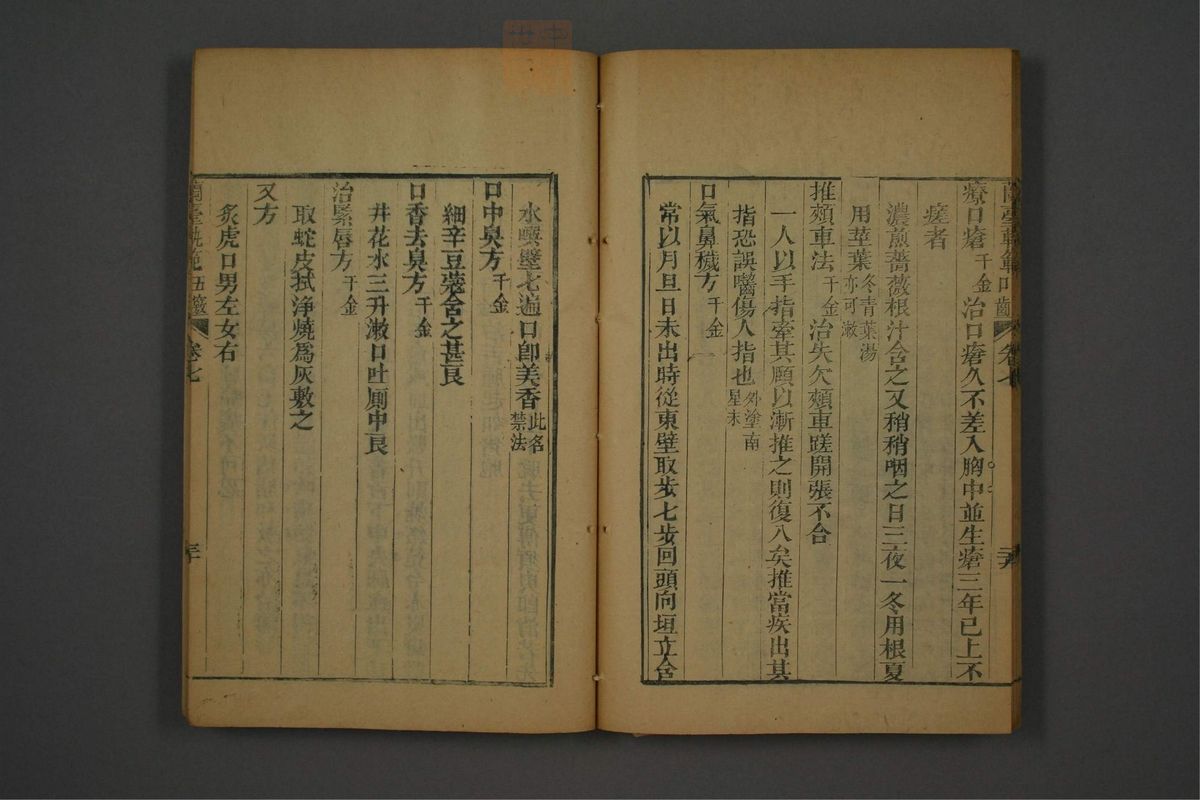 療口瘡千金 治口瘡久不差入胸中並生瘡三年已上不
瘥者
濃煎薔薇根汁含之又稍稍咽之日三夜一冬用根夏
用莖葉冬青葉湯亦可漱
推頰車法千金 治失欠頰車蹉開張不合
一人以手指牽其頤以漸推之則復入矣推當疾出其
指恐誤嚙傷人指也外塗南星末
口氣鼻穢方千金
常以月旦日未出時從東壁取步七步回頭向垣立含
水噀壁七遍口卽美香此名禁法
口中臭方千金
細辛豆蔻含之甚良
口香去臭方千金
井花水三升漱口吐厠中良
治緊唇方千金
取蛇皮拭淨燒爲灰敷之
又方
炙虎口男左女右
卷七